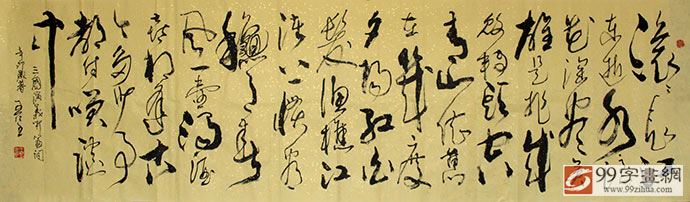 滚滚长江
东逝水浪
花淘尽英
雄是非成
败转头空
青山依旧
在几度
夕阳红白
发渔樵江
渚上惯看
秋月春
风一壶浊酒
喜相逢古
今多少事
都付笑谈
中
三国演义开篇词
99字畫網
www.99zihua.com